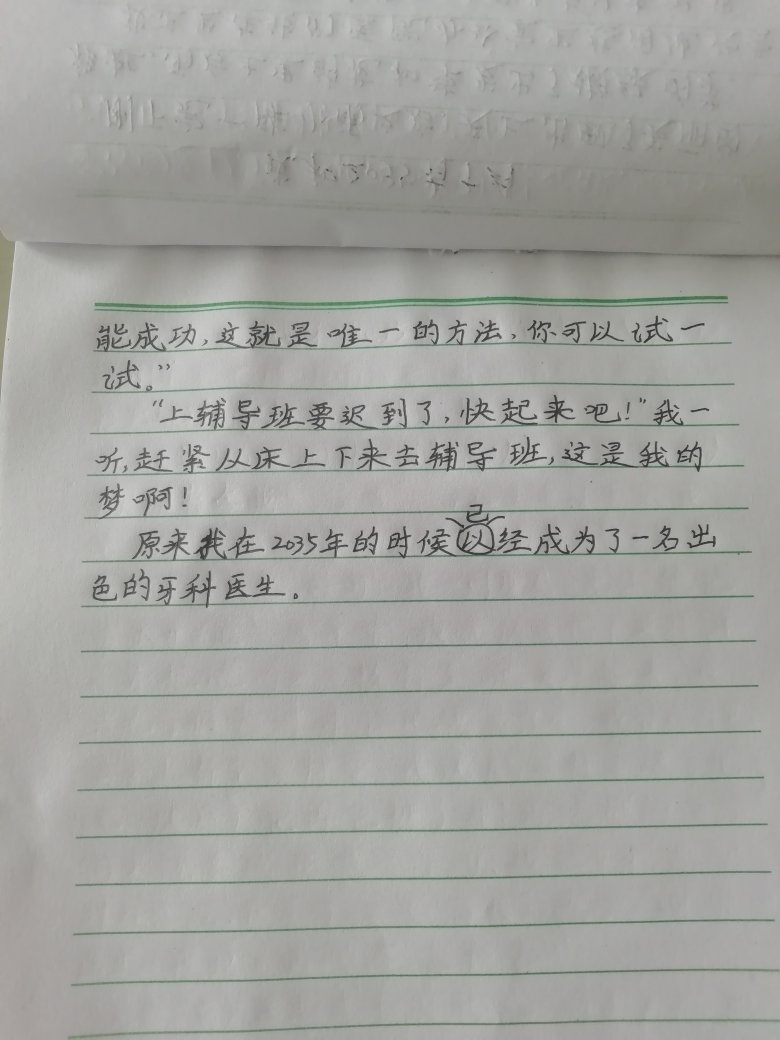 能成功,这就是唯一的方法,你可以试一
试。”
“上辅导班要迟到了,快起来吧!”我一
听,赶紧从床上下来去辅导班,这是我的
梦啊!
已
原来我在2035年的时候以经成为了一名出
色的牙科医生。